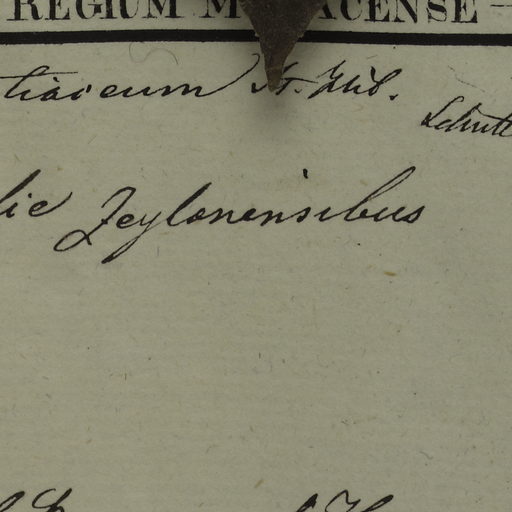 REGIUM M ACENSE
tiaceum St. Zub.
Schutt
lie Zeylonensibus